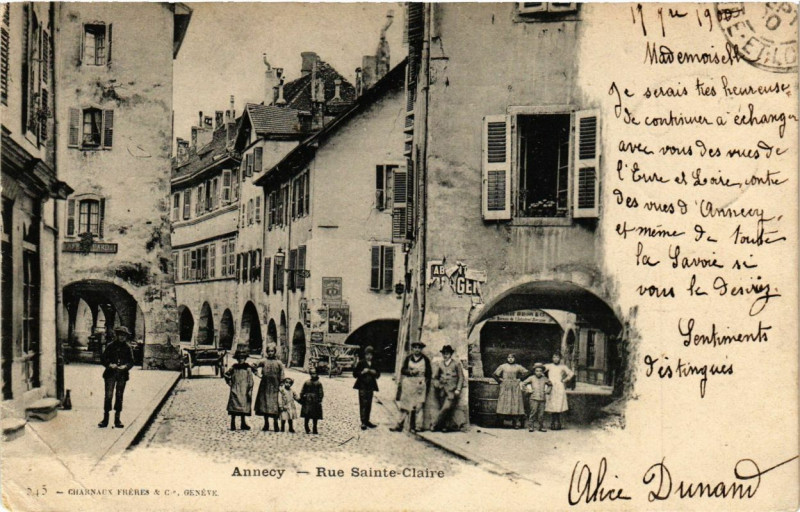 17 7bre 1900
Mademoiselle
Je serais très heureuse
de continuer à échanger
avec vous des vues de
l'Eure et Loire, contre
des vues d'Annecy,
et même de toute
la Savoie si
vous le désirez.
Sentiments
distingués
Alice Dunand
Annecy — Rue Sainte-Claire
245 — CHARNAUX FRÈRES & Cie, GENÈVE